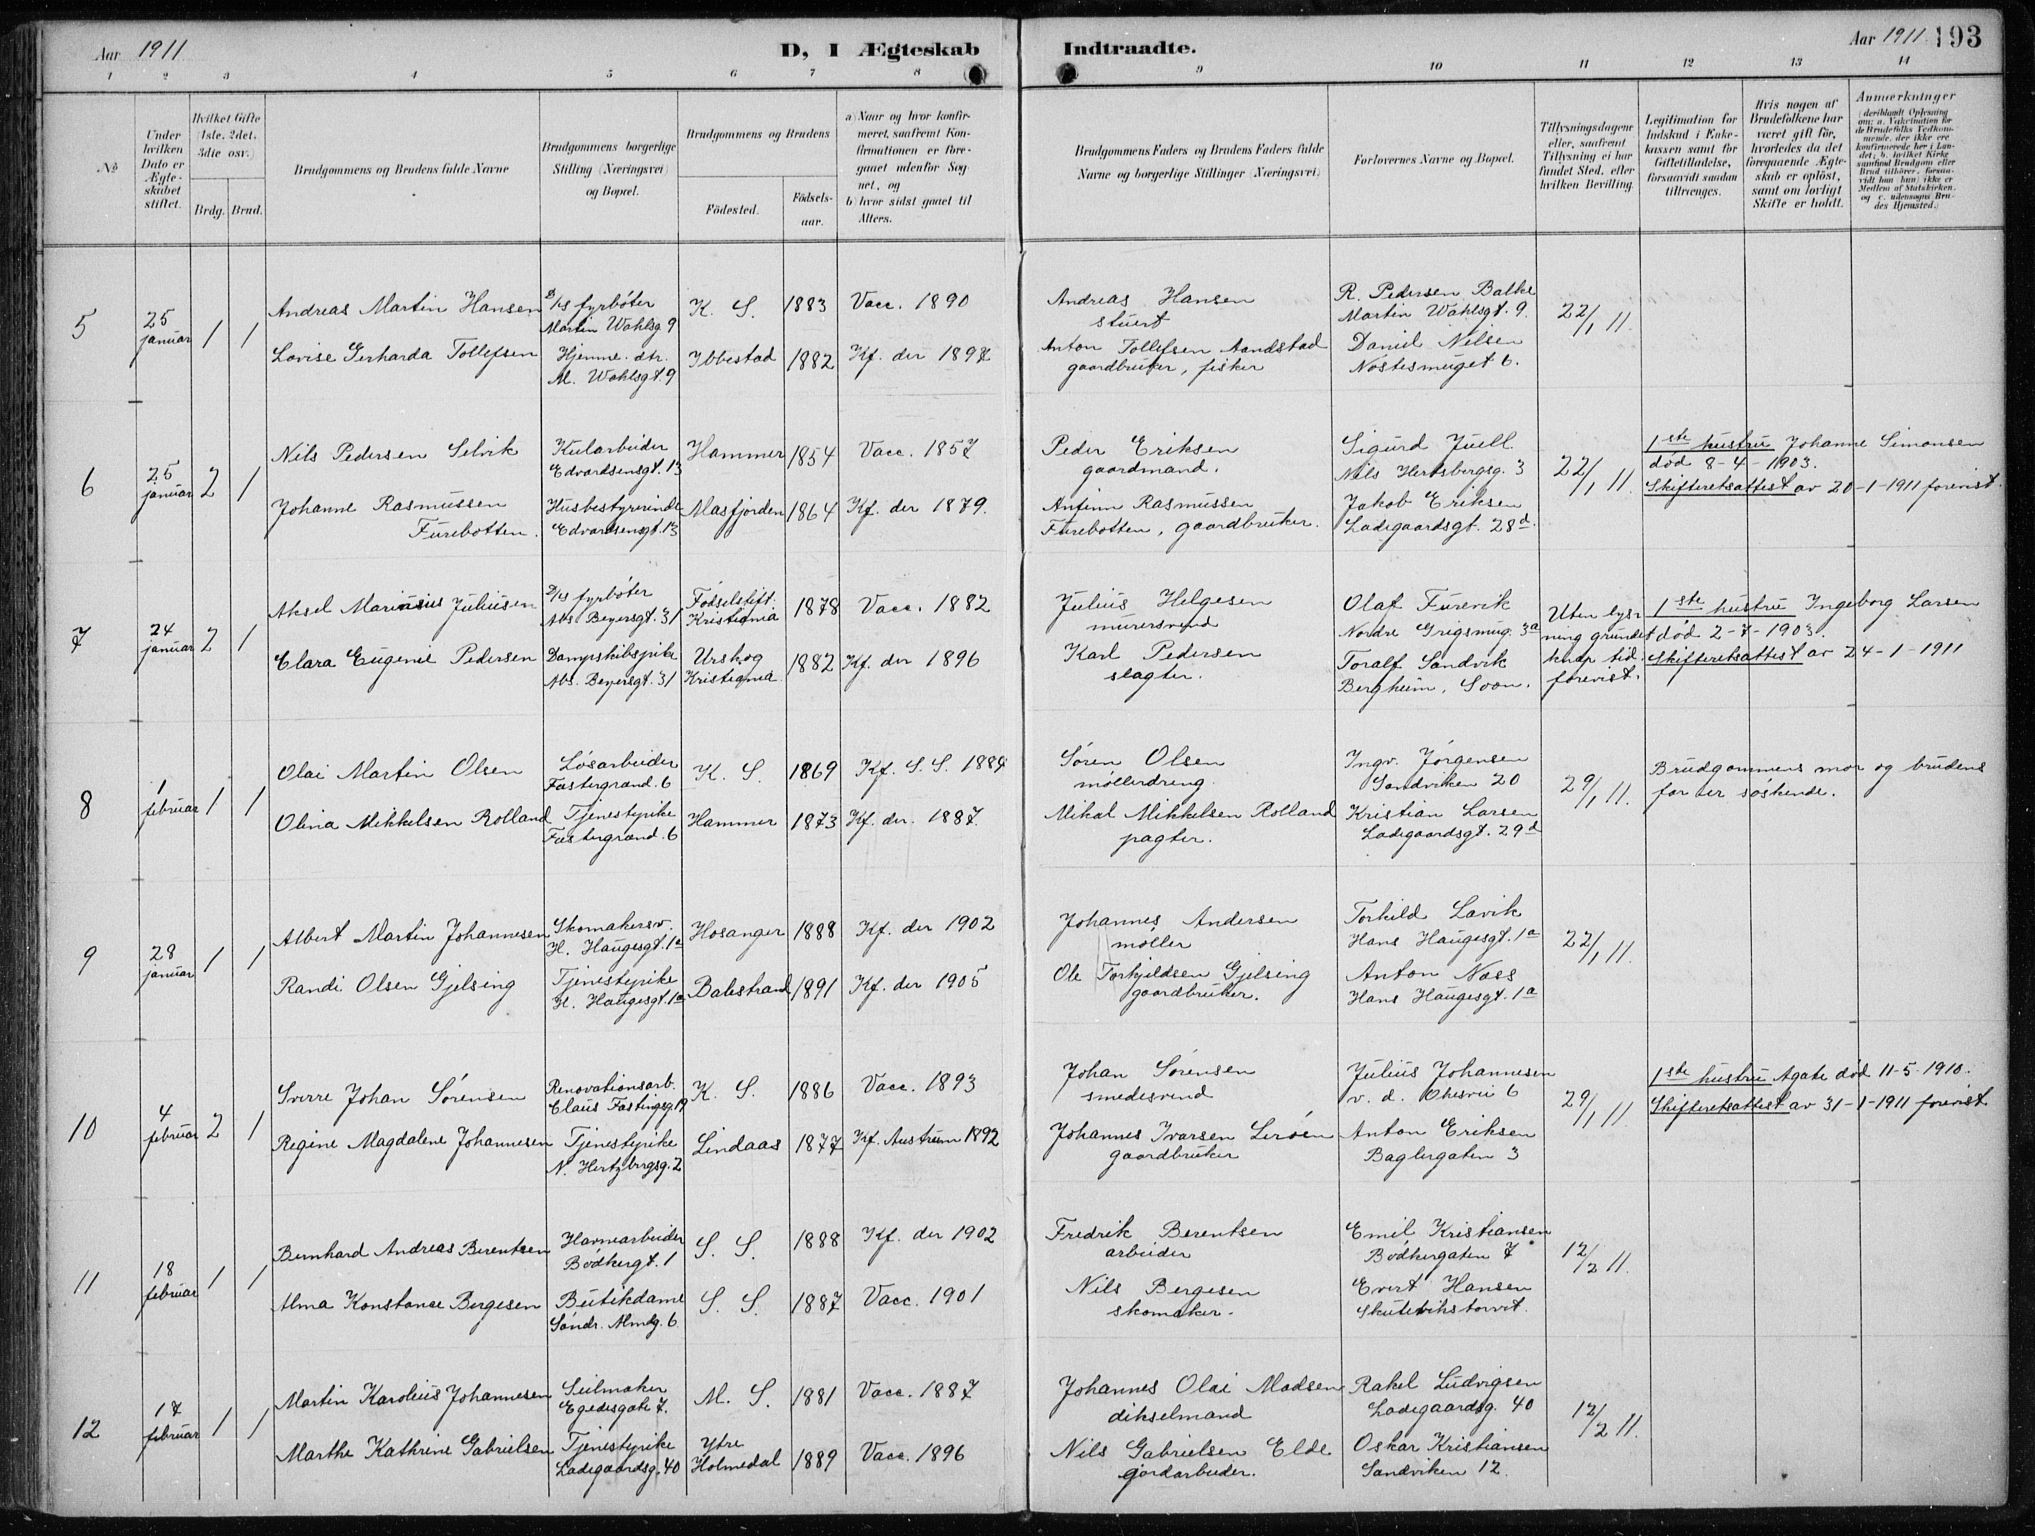 Aar 1911
D, I Ægteskab
Indtraadte.
Aar 1911
193
1 2 3 4 5 6 7 8 9 10 11 12 13 14
No
Under hvilken Dato er Ægteskabet stiftet.
Hvilket Gifte (1ste, 2det, 3die osv.)
Brdg. Brud.
Brudgommens og Brudens fulde Navne
Brudgommens borgerlige Stilling (Næringsvei) og Bopæl.
Brudgommens og Brudens
Fødested.
Fødselsaar.
a) Naar og hvor konfirmeret, saafremt Konfirmationen er foregaaet udenfor Sognet, og
b) hvor sidst gaaet til Alters.
Brudgommens Faders og Brudens Faders fulde Navne og borgerlige Stillinger (Næringsvei)
Forlovernes Navne og Bopæl.
Tillysningsdagene eller, saafremt Tillysning ei har fundet Sted, efter hvilken Bevilling.
Legitimation for Indskud i Enkekassen samt for Giftetilladelse, forsaavidt saadan tiltrænges.
Hvis nogen af Brudefolkene har været gift før, hvorledes da det foregaaende Ægteskab er opløst, samt om lovligt Skifte er holdt.
Anmærkninger (deriblandt Oplysning om: a. Vakcination for de Brudefolks Vedkommende, der ikke ere konfirmerede her i Landet; b. hvilket Kirkesamfund Brudgom eller Brud tilhører, forsaavidt han (hun) ikke er Medlem af Statskirken, og c. udensogns Brudes Hjemsted.)
5
25 januar
1 1
Andreas Martin Hansen
D/s fyrbøter
Martin Wahlsg. 9
K. S. 1883 Vacc. 1890
Andreas Hansen
stuert
R. Pedersen Balke
Martin Wahlsgt. 9.
22/1 11.
Lovise Gerharda Tollefsen
Hjemme. dtr.
M. Wahlsgt. 9
Ibbestad 1882 Kf. der 1897
Anton Tollefsen Aandstad
gaardbruker, fisker
Daniel Nilsen
Nøstesmuget 6.
6
25 januar
2 1
Nils Pedersen Selvik
Kularbeider
Edvardsensgt. 13
Hammer 1854 Vacc. 1857
Peder Eriksen
gaardmand.
Sigurd Juell
Nils Hertsbergsg. 3
22/1 11.
1ste hustru Johanne Simonsen
død 8-4-1903.
Skifteretsattest av 20-1-1911 forevist.
Johanne Rasmussen
Furebotten.
Husbestyrerinde
Edvardsensgt. 13
Masfjorden 1864 Kf. der 1879.
Anfinn Rasmussen
Furebotten, gaardbruker.
Jakob Eriksen
Ladegaardsgt. 28d.
7
24 januar
2 1
Aksel Mariusius Juliusen
D/s fyrbøter
Abs. Beyersgt. 31
Fødselstift. Kristiania
1878 Vacc. 1882
Julius Helgesen
murersvend
Olaf Furevik
Nordre Grigsmug. 3a
Uten lysning grundet knap tid. forevist.
1ste hustru Ingeborg Larsen
død 2-7-1903.
Skifteretsattest av 24-1-1911
Clara Eugenie Pedersen
Dampskibspike
Abs. Beyersgt. 31
Urskog Kristiania
1882 Kf. der 1896
Karl Pedersen
slagter.
Toralf Sandvik
Bergheim, Soon.
8
1 februar
1 1
Olai Martin Olsen
Løsarbeider
Fastergrand. 6
K. S. 1869 Kf. S. S. 1884
Søren Olsen
møllerdreng.
Ingv. Jørgensen
Sandviken 20
29/1 11.
Brudgommens mor og brudens
far er søskende.
Olina Mikkelsen Rolland
Tjenestepike
Fastergrand. 6
Hammer 1873 Kf. der. 1887.
Mikal Mikkelsen Rolland
pagter.
Kristian Larsen
Ladegaardsgt. 29d
9
28 januar
1 1
Albert Martin Johannesen
Skomakersv.
H. Haugesgt. 1a
Hosanger 1888 Kf. der 1902
Johannes Andersen
møller
Torkild Lavik
Hans Haugesgt. 1a
22/1 11.
Randi Olsen Gjelsing
Tjenestepike
H. Haugesgt. 1a
Balestrand 1891 Kf. der 1905
Ole Torkjeldsen Gjelsing
gaardbruker.
Anton Næss
Hans Haugesgt. 1a
10
4 februar
2 1
Sverre Johan Sørensen
Renovationsarb.
Claus Fastingsg. 19
K. S. 1886 Vacc. 1893
Johan Sørensen
smedesvend
Julius Johannesen
v. d. Ohesvei 6
29/1 11.
1ste hustru Agate død 11-5-1910.
Skifteretsattest av 31-1-1911 forevist
Regine Magdalene Johannesen
Tjenestepike
N. Hertzbergsg. 2
Lindaas 1877 Kf. Austrum 1892
Johannes Ivarsen Lerøen
gaardbruker
Anton Eriksen
Baglergaten 3
11
18 februar
1 1
Bernhard Andreas Berentsen
Havnearbeider
Bødkergt. 1
S. S. 1888 Kf. der 1902
Fredrik Berentsen
arbeider
Emil Kristiansen
Bødkergaten 7
12/2 11.
Alma Konstance Bergesen
Butikdame
Søndr. Almdg. 6
S. S. 1887 Vacc. 1901
Nils Bergesen
skomaker.
Evert Hansen
Skutevikstorvet.
12
17 februar
1 1
Martin Karolius Johannesen
Seilmaker
Egedesgate 7.
M. S. 1881 Vacc. 1887
Johannes Olai Madsen
dikselmand
Rakel Ludvigsen
Ladegaardsg. 40
12/2 11.
Marthe Kathrine Gabrielsen
Tjenestepike
Ladegaardsg. 40
Ytre Holmedal
1889 Vacc. 1896
Nils Gabrielsen Elde
jordarbeider.
Oskar Kristiansen
Sandviken 12.